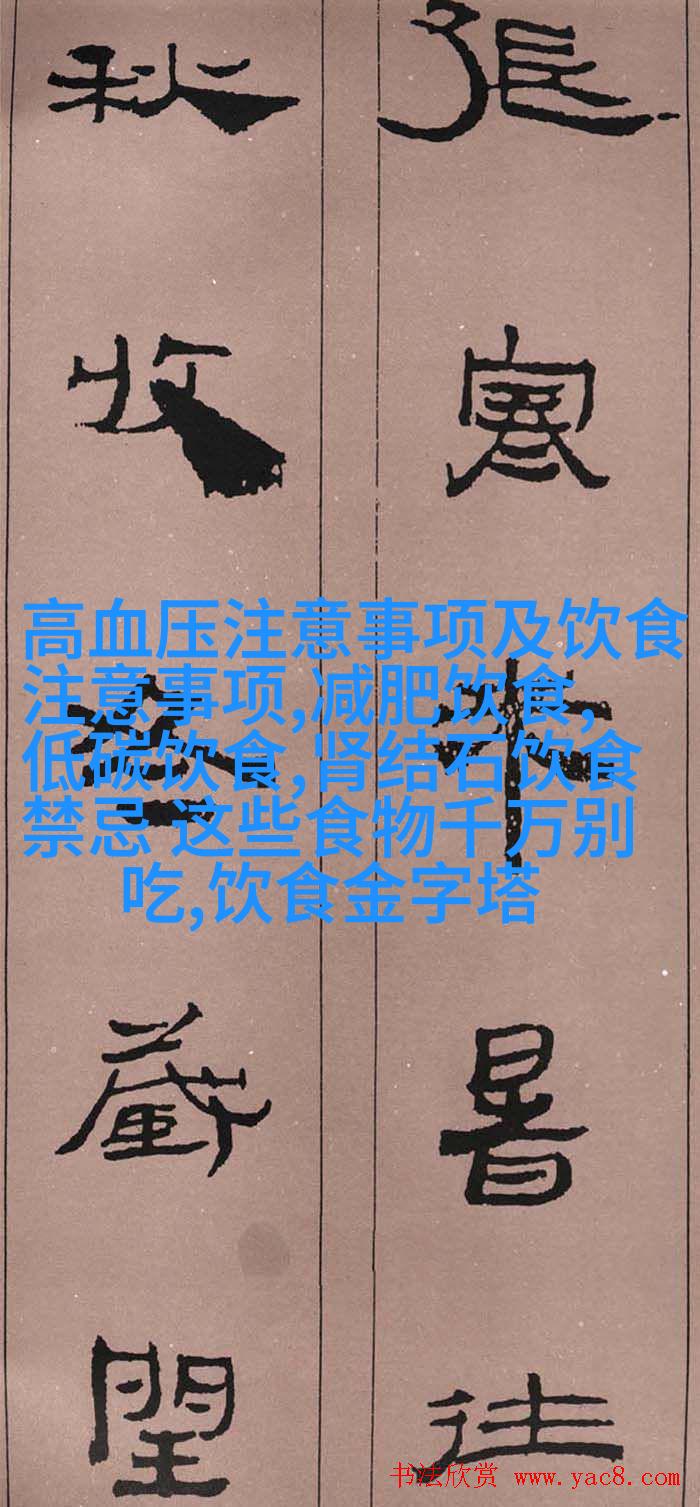 張寒来暑往
秋收冬藏閏
高血压注意事项及饮食
注意事项,减肥饮食,
低碳饮食,肾结石饮食
禁忌 这些食物千万别
吃,饮食金字塔
书法欣赏 www.yac8.com